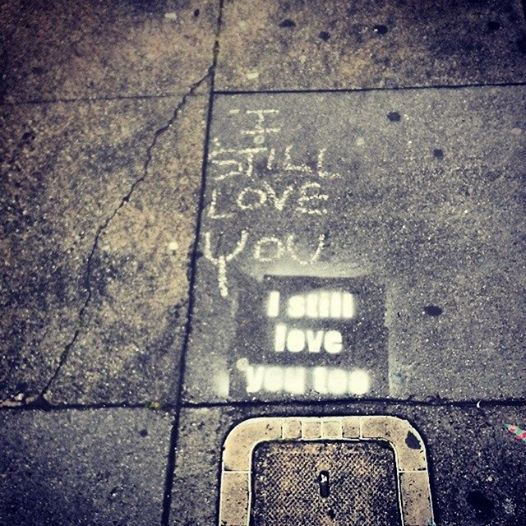 I
STILL
LOVE
YOU
I still
love
you too